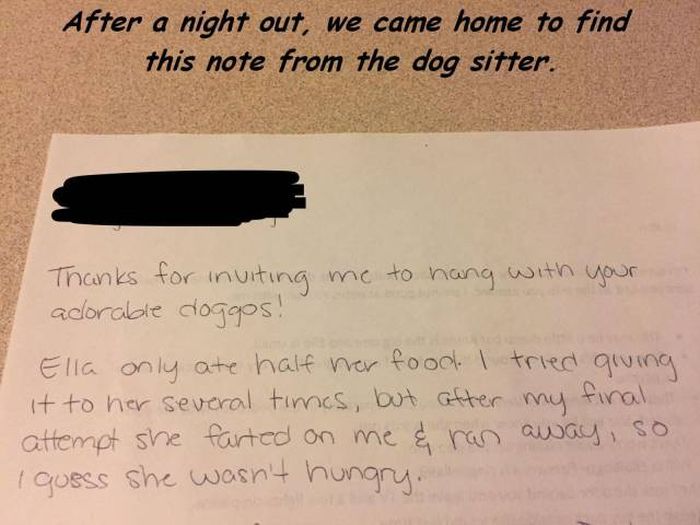 After a night out, we came home to find
this note from the dog sitter.
Thanks for inviting me to hang with your
adorable doggos!
Ella only ate half her food. I tried giving
it to her several times, but after my final
attempt she farted on me & ran away, so
I guess she wasn't hungry.